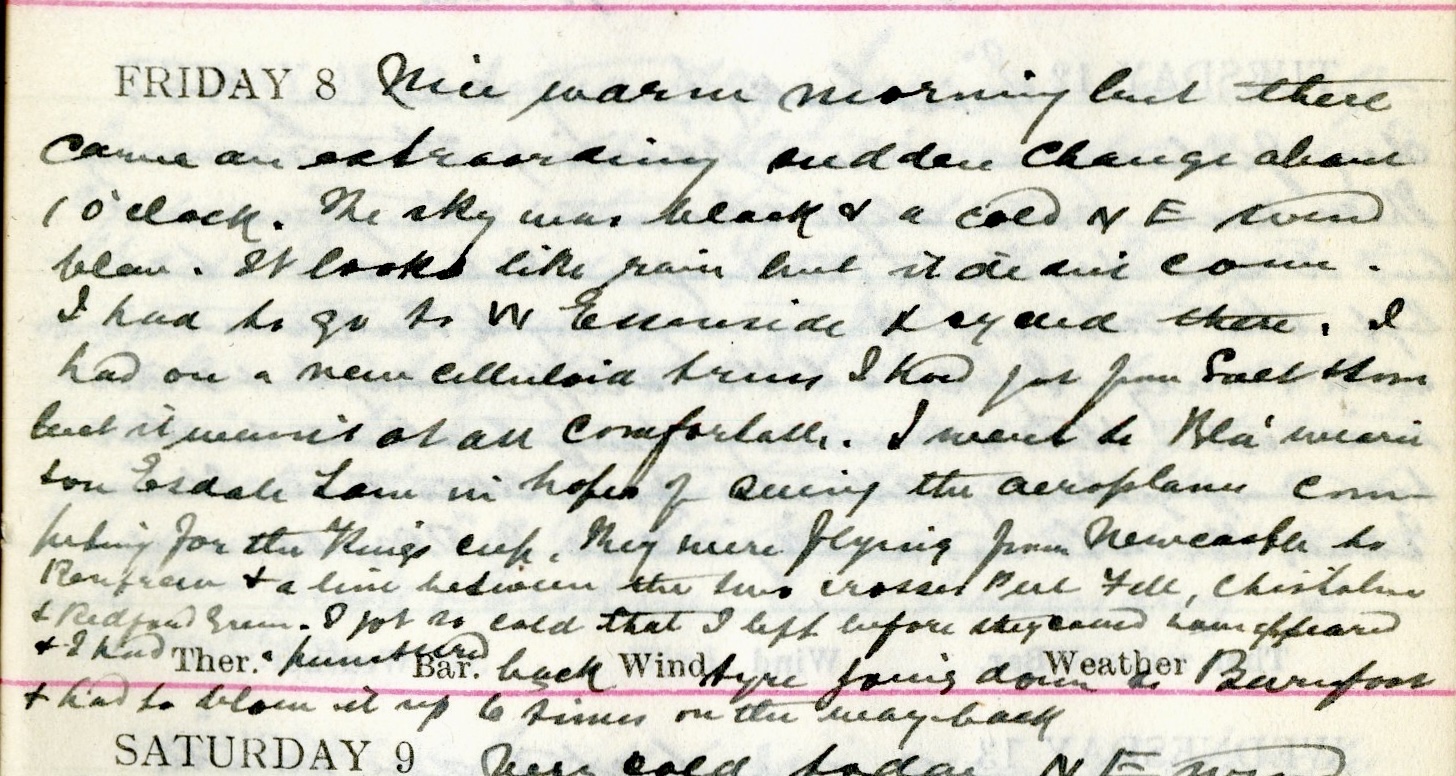 FRIDAY 8 Nice warm morning but there
came an extraordinary sudden change about
1 o'clock. The sky was black & a cold N E wind
blew. It looks like rain but it didn't come.
I had to go to W Essenside & cycled there. I
had on a new celluloid truss I had got from Salt thom
but it wasn't at all comfortable. I went to Bla' weari
ton Esdale Law in hopes of seeing the aeroplanes com-
peting for the Kings cup. They were flying from Newcastle to
Renfrew & a line between the two crosses Peel Fell, Chisholme
& Redfordgreen. I got so cold that I left before they could have appeared
& I had a punctured back tyre going down to Burnfoot
Ther. Bar. Wind Weather
& had to blow it up 6 times on the way back
SATURDAY 9 Very cold today N E wind